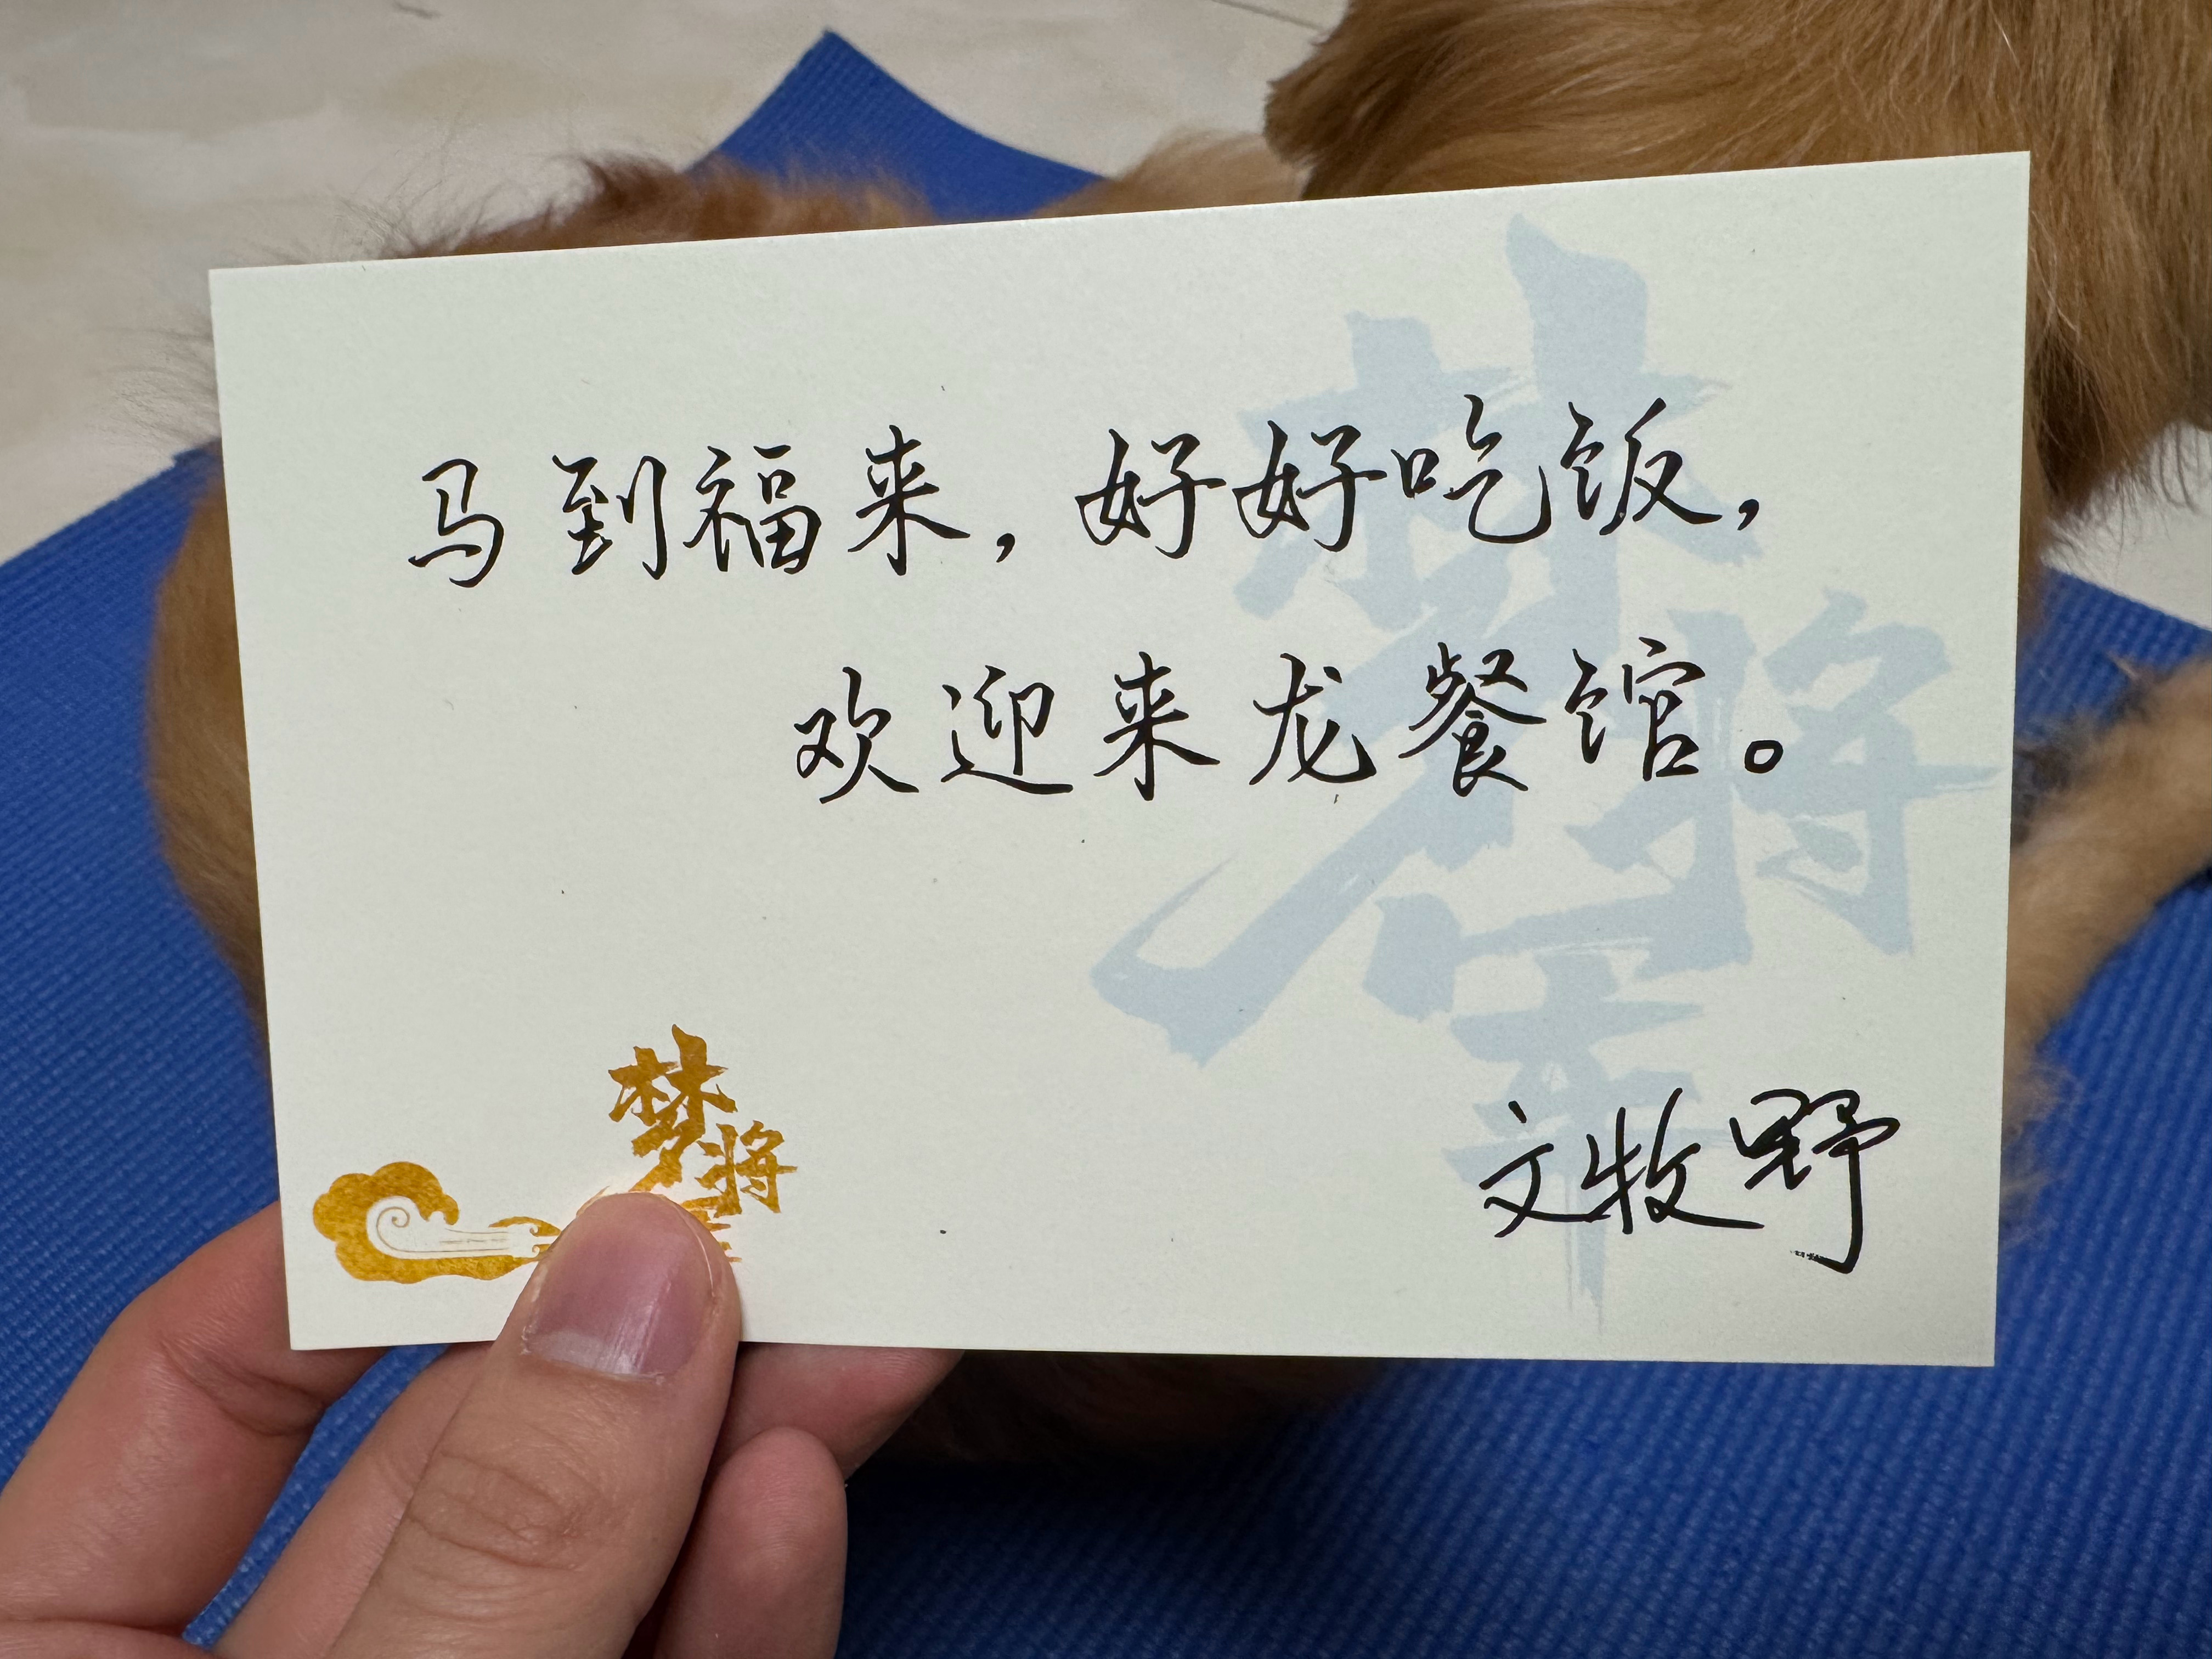 马到福来，好好吃饭，
欢迎来龙餐馆。
梦将军
梦将
文牧野